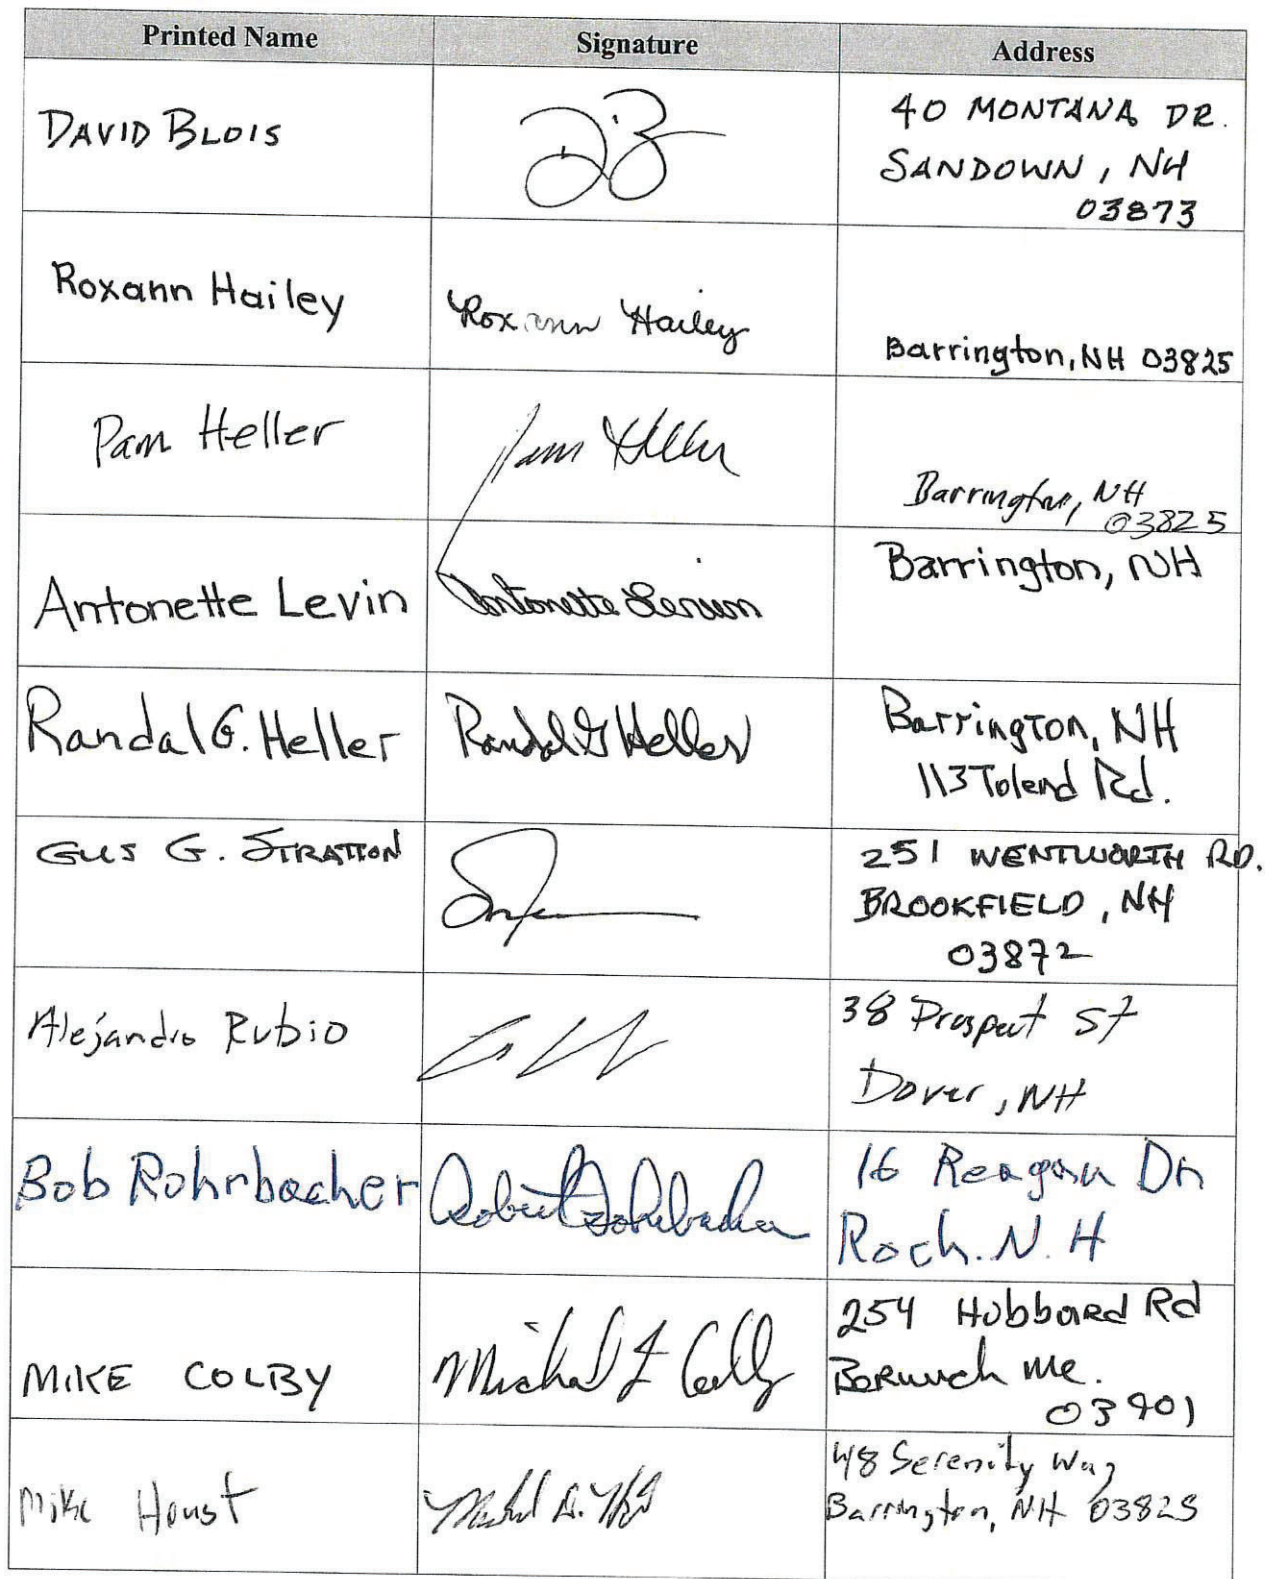 Printed Name Signature Address
DAVID BLOIS
40 MONTANA DR.
SANDOWN, NH
03873
Roxann Hailey Roxann Hailey
Barrington, NH 03825
Pam Heller Pam Heller
Barrington, NH
03825
Antonette Levin Antonette Levin
Barrington, NH
Randal G. Heller Randal G Heller
Barrington, NH
113 Toland Rd.
GUS G. STRATTON
251 WENTWORTH RD.
BROOKFIELD, NH
03872
Alejandro Rubio
38 Prospect St
Dover, NH
Bob Rohrbacher Robert Rohrbacher
16 Reagan Dr
Roch. N. H
MIKE COLBY Michael J Colby
254 Hubbard Rd
Berwick Me.
03901
Mike Houst
48 Serenity Way
Barrington, NH 03825